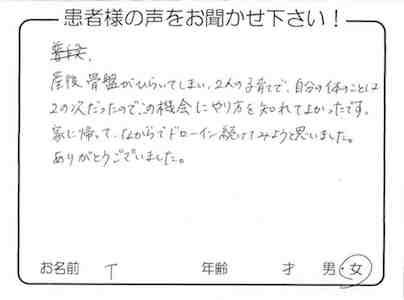 患者様の声をお聞かせ下さい！
産後 骨盤がひらいてしまい、2人の子育てで、自分の体のことは
2の次だったので、この機会にやり方を知れてよかったです。
家に帰って、ながらでドローイン続けてみようと思いました。
ありがとうございました。
お名前 T 年齢 才 男・女